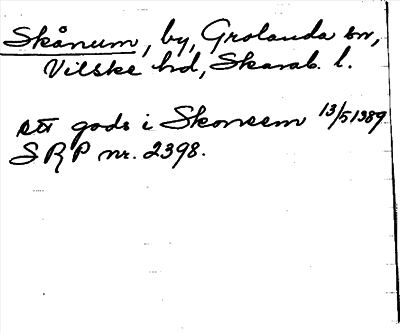 Skånum, by, Grolanda sn,
Vilske hd, Skarab. l.
ett gods i Skonem 13/5 1389
SRP nr. 2398.